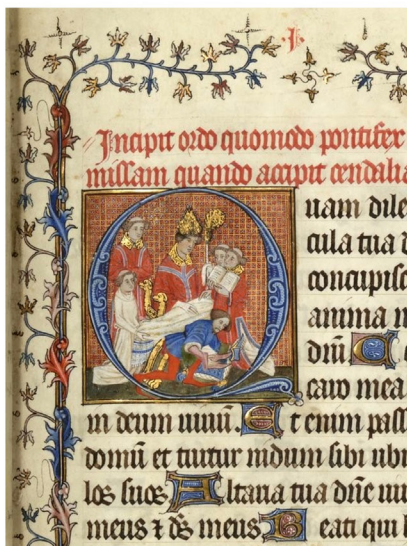 .I.
Incipit ordo quomodo pontifex
missam quando accipit cendalia
Quam dile
cula tua d
concupisc
anima m
dñi. C
caro mea
in deum uiuū. Et enim pass
domū et turtur nidum sibi ubi
los suos Altaria tua dñe uir
meus ⁊ d̄s meus. Beati qui h